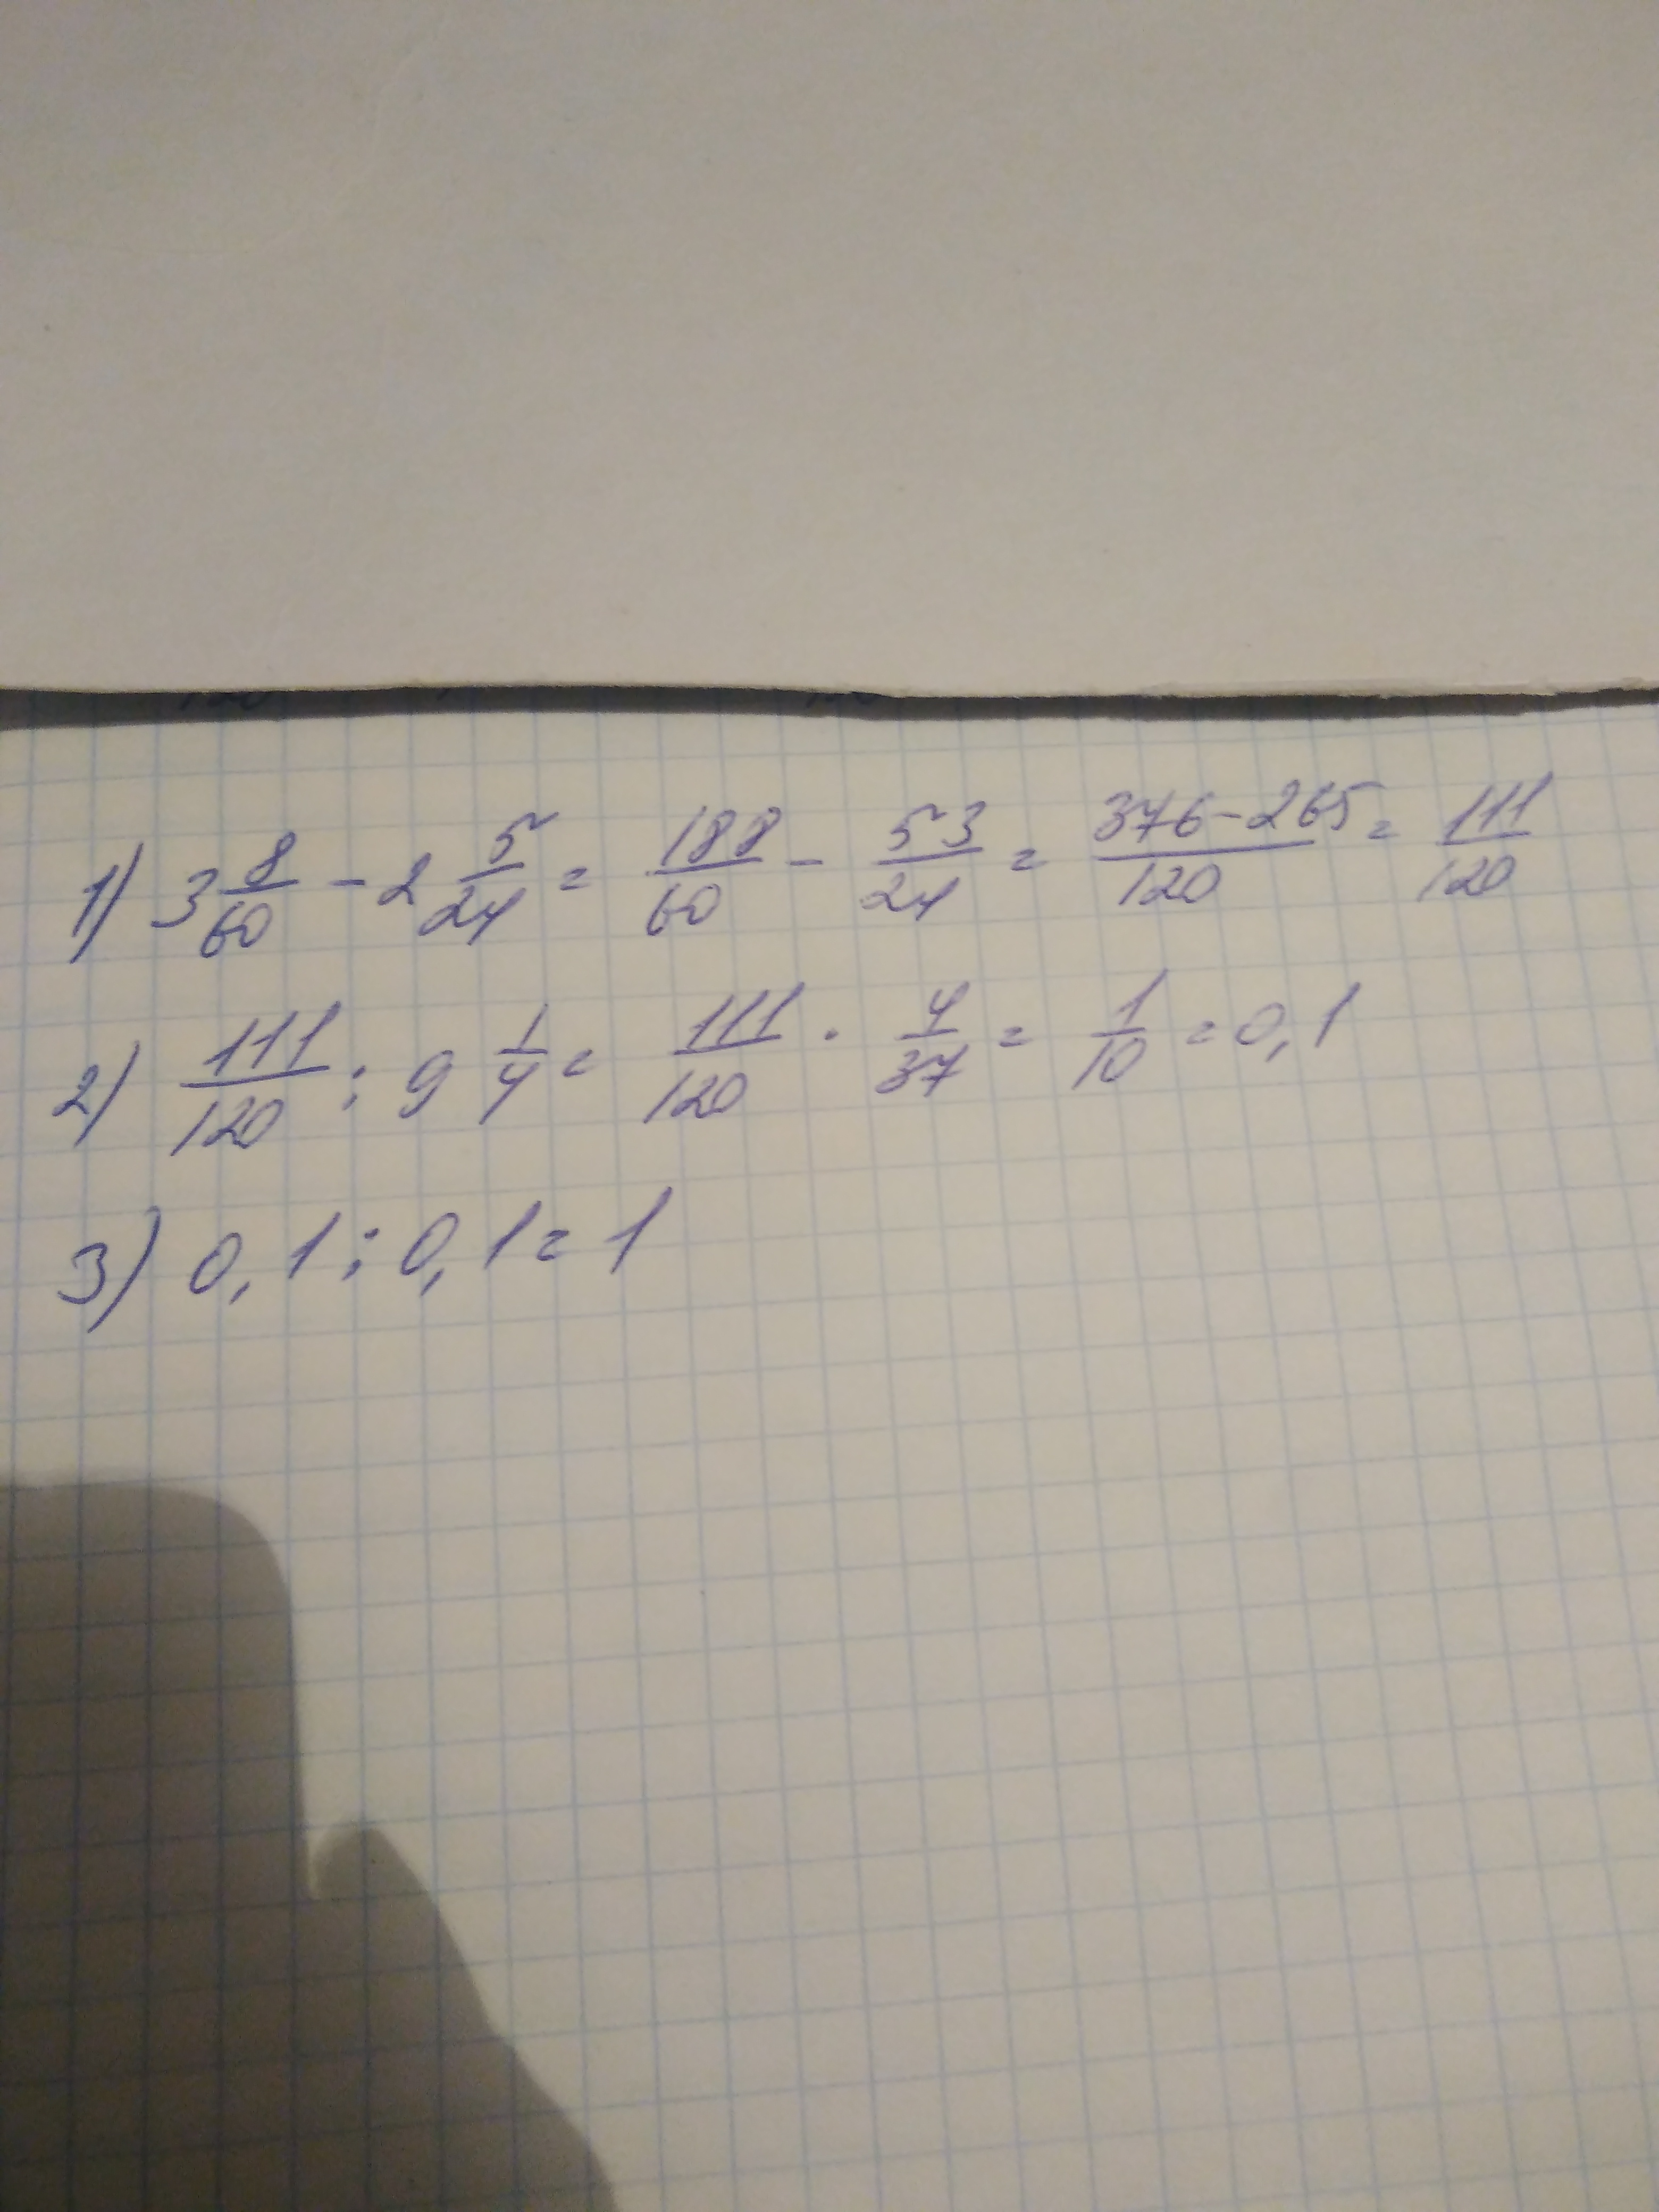 1) 3 8/60 - 2 5/24 = 188/60 - 53/24 = 376-265/120 = 111/120
2) 111/120 : 9 1/4 = 111/120 · 4/37 = 1/10 = 0,1
3) 0,1 : 0,1 = 1